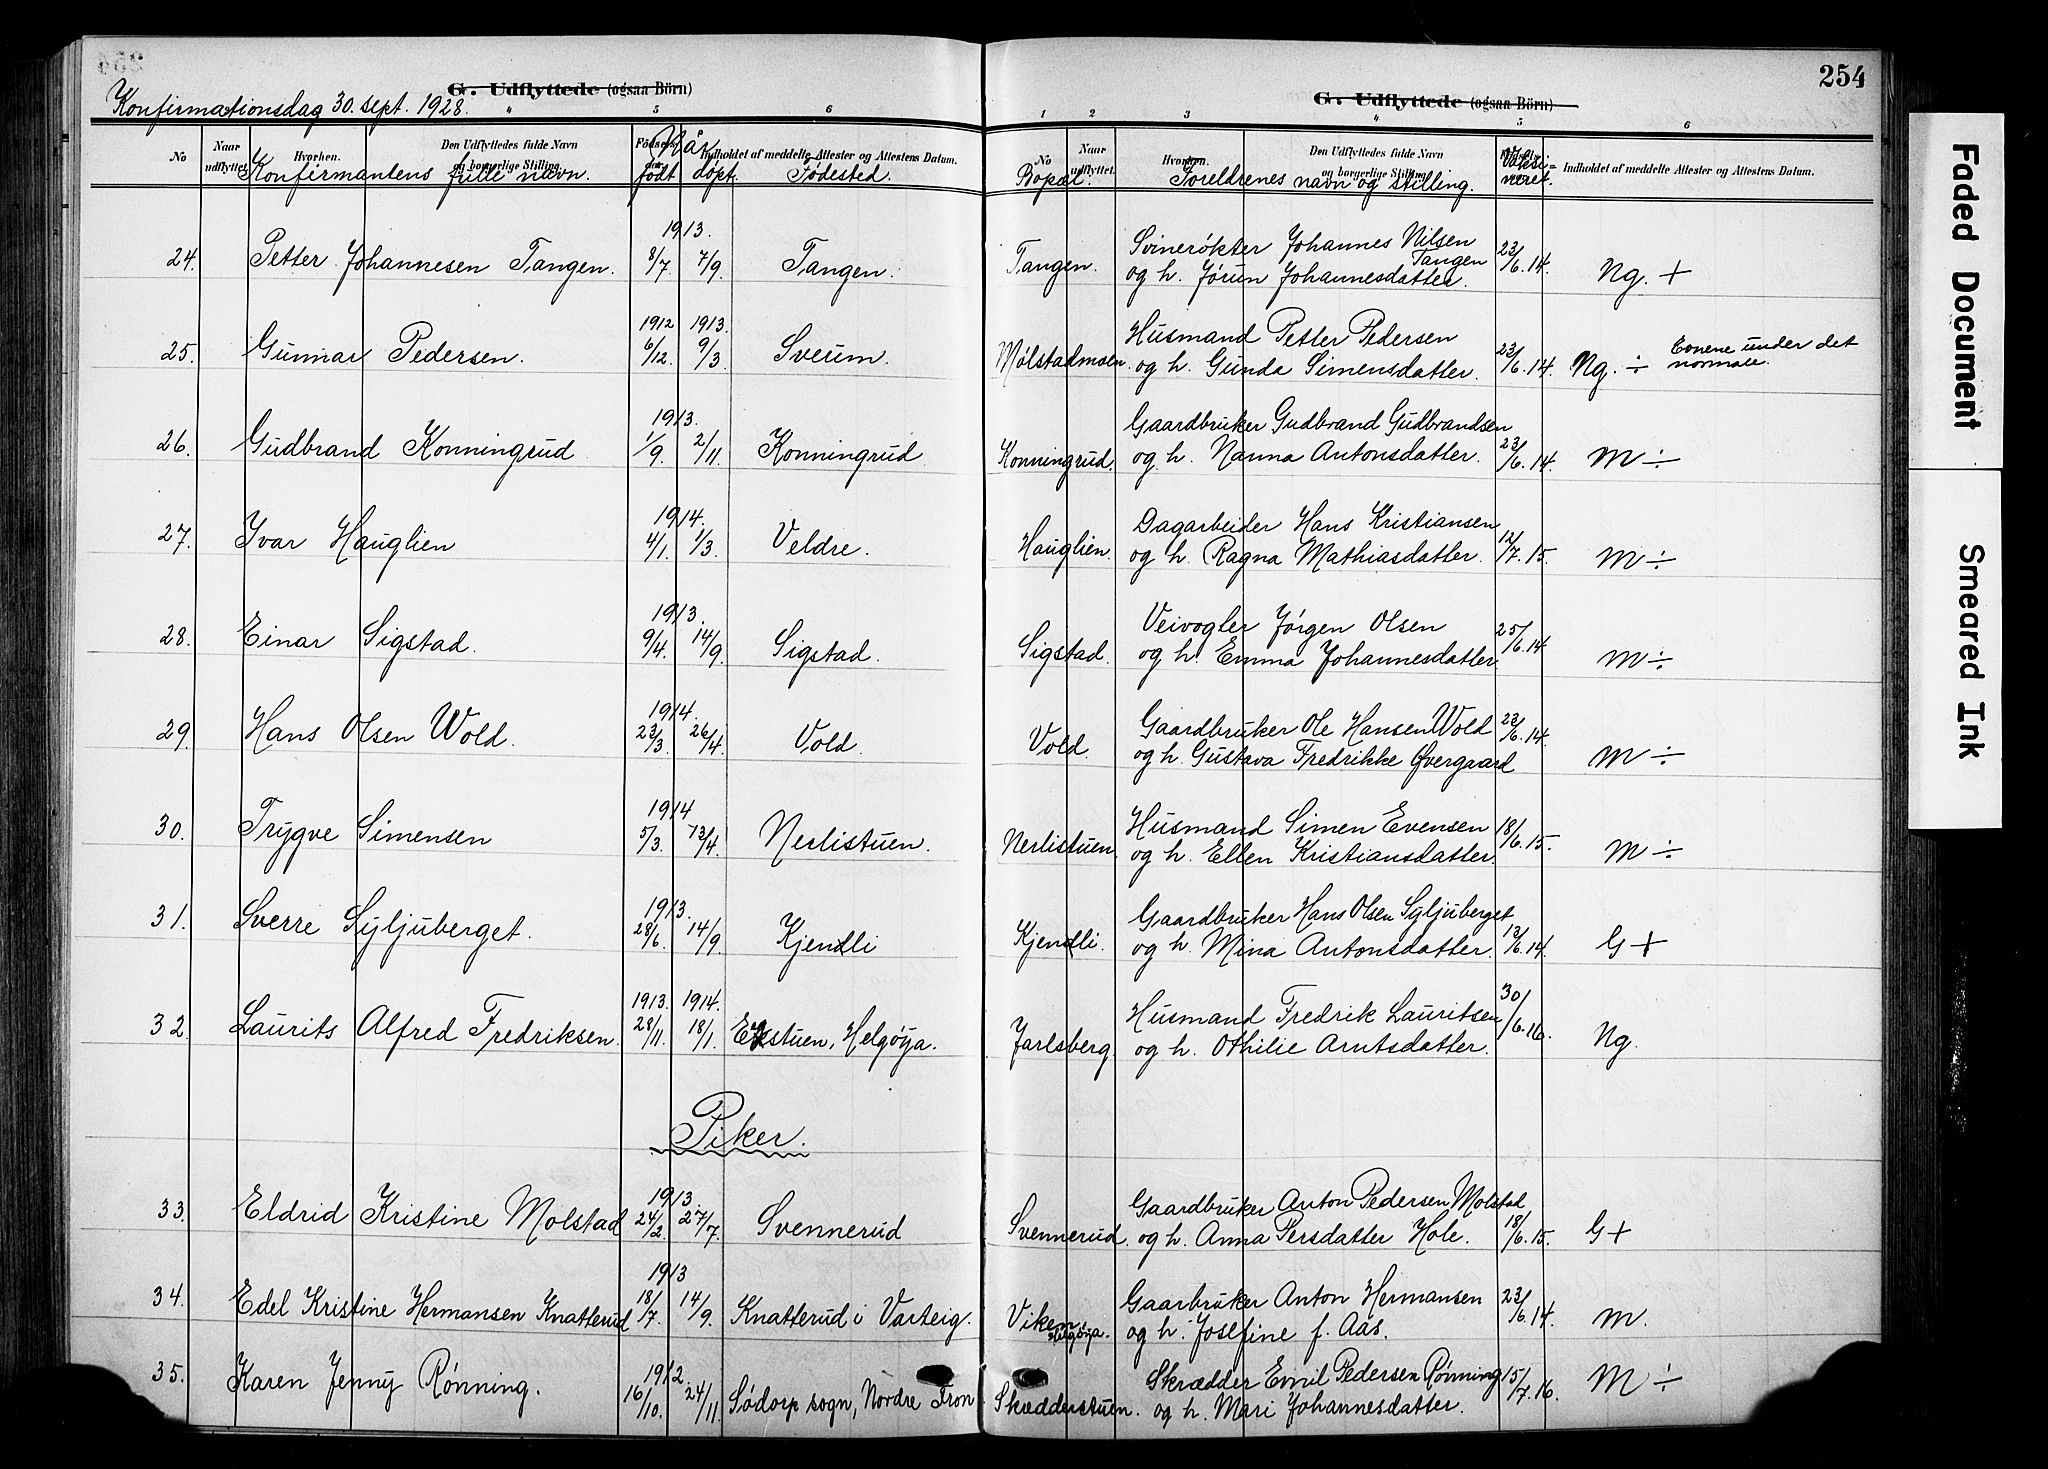 254
G. Udflyttede (ogsaa Börn)
G. Udflyttede (ogsaa Börn)
Konfirmationsdag 30. sept. 1928.
4 5 6 1 2 3 4 5 6
No Naar udflyttet. Hvorhen. Den Udflyttedes fulde Navn og borgerlige Stilling. Indholdet af meddelte Attester og Attestens Datum.
No Naar udflyttet. Hvorhen. Den Udflyttedes fulde Navn og borgerlige Stilling. Indholdet af meddelte Attester og Attestens Datum.
Når
Konfirmantens fulle navn. født døpt. Fødested. Bopæl. Foreldrenes navn og stilling. Vaksineret.
1913. Svinerøkter Johannes Nilsen Tangen
24. Petter Johannesen Tangen. 8/7. 7/9. Tangen. Tangen. og h. Jørun Johannesdatter. 23/6.14. Ng. +
1912 1913. Husmand Petter Pedersen
25. Gunnar Pedersen. 6/12. 9/3 Sveum. Mølstadmoen. og h. Gunda Simensdatter. 23/6.14. Ng. ÷ Evnene under det normale.
1913. Gaardbruker Gudbrand Gudbrandsen
26. Gudbrand Konningrud 1/9. 2/11. Konningrud. Konningrud. og h. Nanna Antonsdatter. 23/6.14. M ÷
1914. Dagarbeider Hans Kristiansen
27. Ivar Hauglien 4/1. 1/3. Veldre. Hauglien. og h. Ragna Mathiasdatter. 12/7.15. M ÷
1913. Veivogter Jørgen Olsen
28. Einar Sigstad. 9/4. 14/9. Sigstad. Sigstad. og h. Emma Johannesdatter. 25/6.14 M ÷
1914. Gaardbruker Ole Hansen Wold
29. Hans Olsen Wold. 23/3. 26/4. Vold. Vold. og h. Gustava Fredrikke Øvergaard 23/6.14. M ÷
1914 Husmand Simen Evensen
30. Trygve Simensen 5/3. 13/4. Nerlistuen. Nerlistuen. og h. Ellen Kristiansdatter. 18/6.15. M ÷
1913. Gaardbruker Hans Olsen Syljuberget
31. Sverre Syljuberget. 28/6. 14/9. Kjendli Kjendli. og h. Mina Antonsdatter. 13/6.14. G +
1913. 1914. Husmand Fredrik Lauritsen
32. Laurits Alfred Fredriksen. 28/11. 18/1. Ekstuen, Helgøya. Jarlsberg. og h. Othilie Arntsdatter. 30/6.16. Ng.
Piker.
1913. Gaardbruker Anton Pedersen Molstad
33. Eldrid Kristine Molstad 24/2. 27/7. Svennerud Svennerud. og h. Anna Persdatter Hole. 18/6.15. G +
1913 Gaarbruker Anton Hermansen
34. Edel Kristine Hermansen Knatterud 18/7. 14/9. Knatterud i Varteig. Viken, Helgøya. og h. Josefine f. Aas. 23/6.14. M.
1912. Skrædder Emil Pedersen Rønning
35. Karen Jenny Rønning. 16/10. 24/11. Sødorp sogn, Nordre Fron Skrædderstuen. og h. Mari Johannesdatter. 15/7.16. M ÷
Faded Document
Smeared Ink